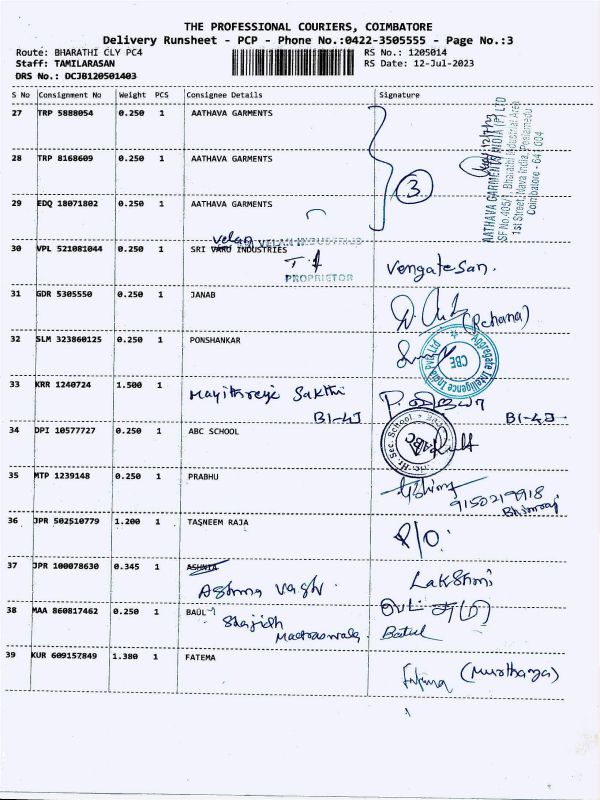 THE PROFESSIONAL COURIERS, COIMBATORE
Delivery Runsheet - PCP - Phone No.:0422-3505555 - Page No.:3
Route: BHARATHI CLY PC4 RS No.: 1205014
Staff: TAMILARASAN RS Date: 12-Jul-2023
DRS No.: DCJB120501403
S No Consignment No Weight PCS Consignee Details Signature
27 TRP 5888054 0.250 1 AATHAVA GARMENTS
28 TRP 8168609 0.250 1 AATHAVA GARMENTS
3
AATHAVA GARMENTS INDIA (P) LTD
SF No.405/1, Bharathi Industrial Area
1st Street, Nava India, Peelamedu
Coimbatore - 641 004
29 EDQ 18071802 0.250 1 AATHAVA GARMENTS
Velan
VELAN INDUSTRIES
30 VPL 521081044 0.250 1 SRI VARU INDUSTRIES
PROPRIETOR
Vengatesan.
31 GDR 5305550 0.250 1 JANAB
(Rchana)
32 SLM 323860125 0.250 1 PONSHANKAR
Aggregate Intelligence India Pvt Ltd
CBE
33 KRR 1240724 1.500 1
Sakthi
B1-4J B1-4J
34 DPI 10577727 0.250 1 ABC SCHOOL
Hr. Sec. School
ABC
35 MTP 1239148 0.250 1 PRABHU
9150219918
Bhimraj
36 JPR 502510779 1.200 1 TASNEEM RAJA
P/O.
37 JPR 100078630 0.345 1 ASHNIA
Ashma Vagh. Lakshmi
38 MAA 860817462 0.250 1 BADL
Shajidh
Madraswala. Batul
39 KUR 609157849 1.380 1 FATEMA
Fatema (Murthaza)